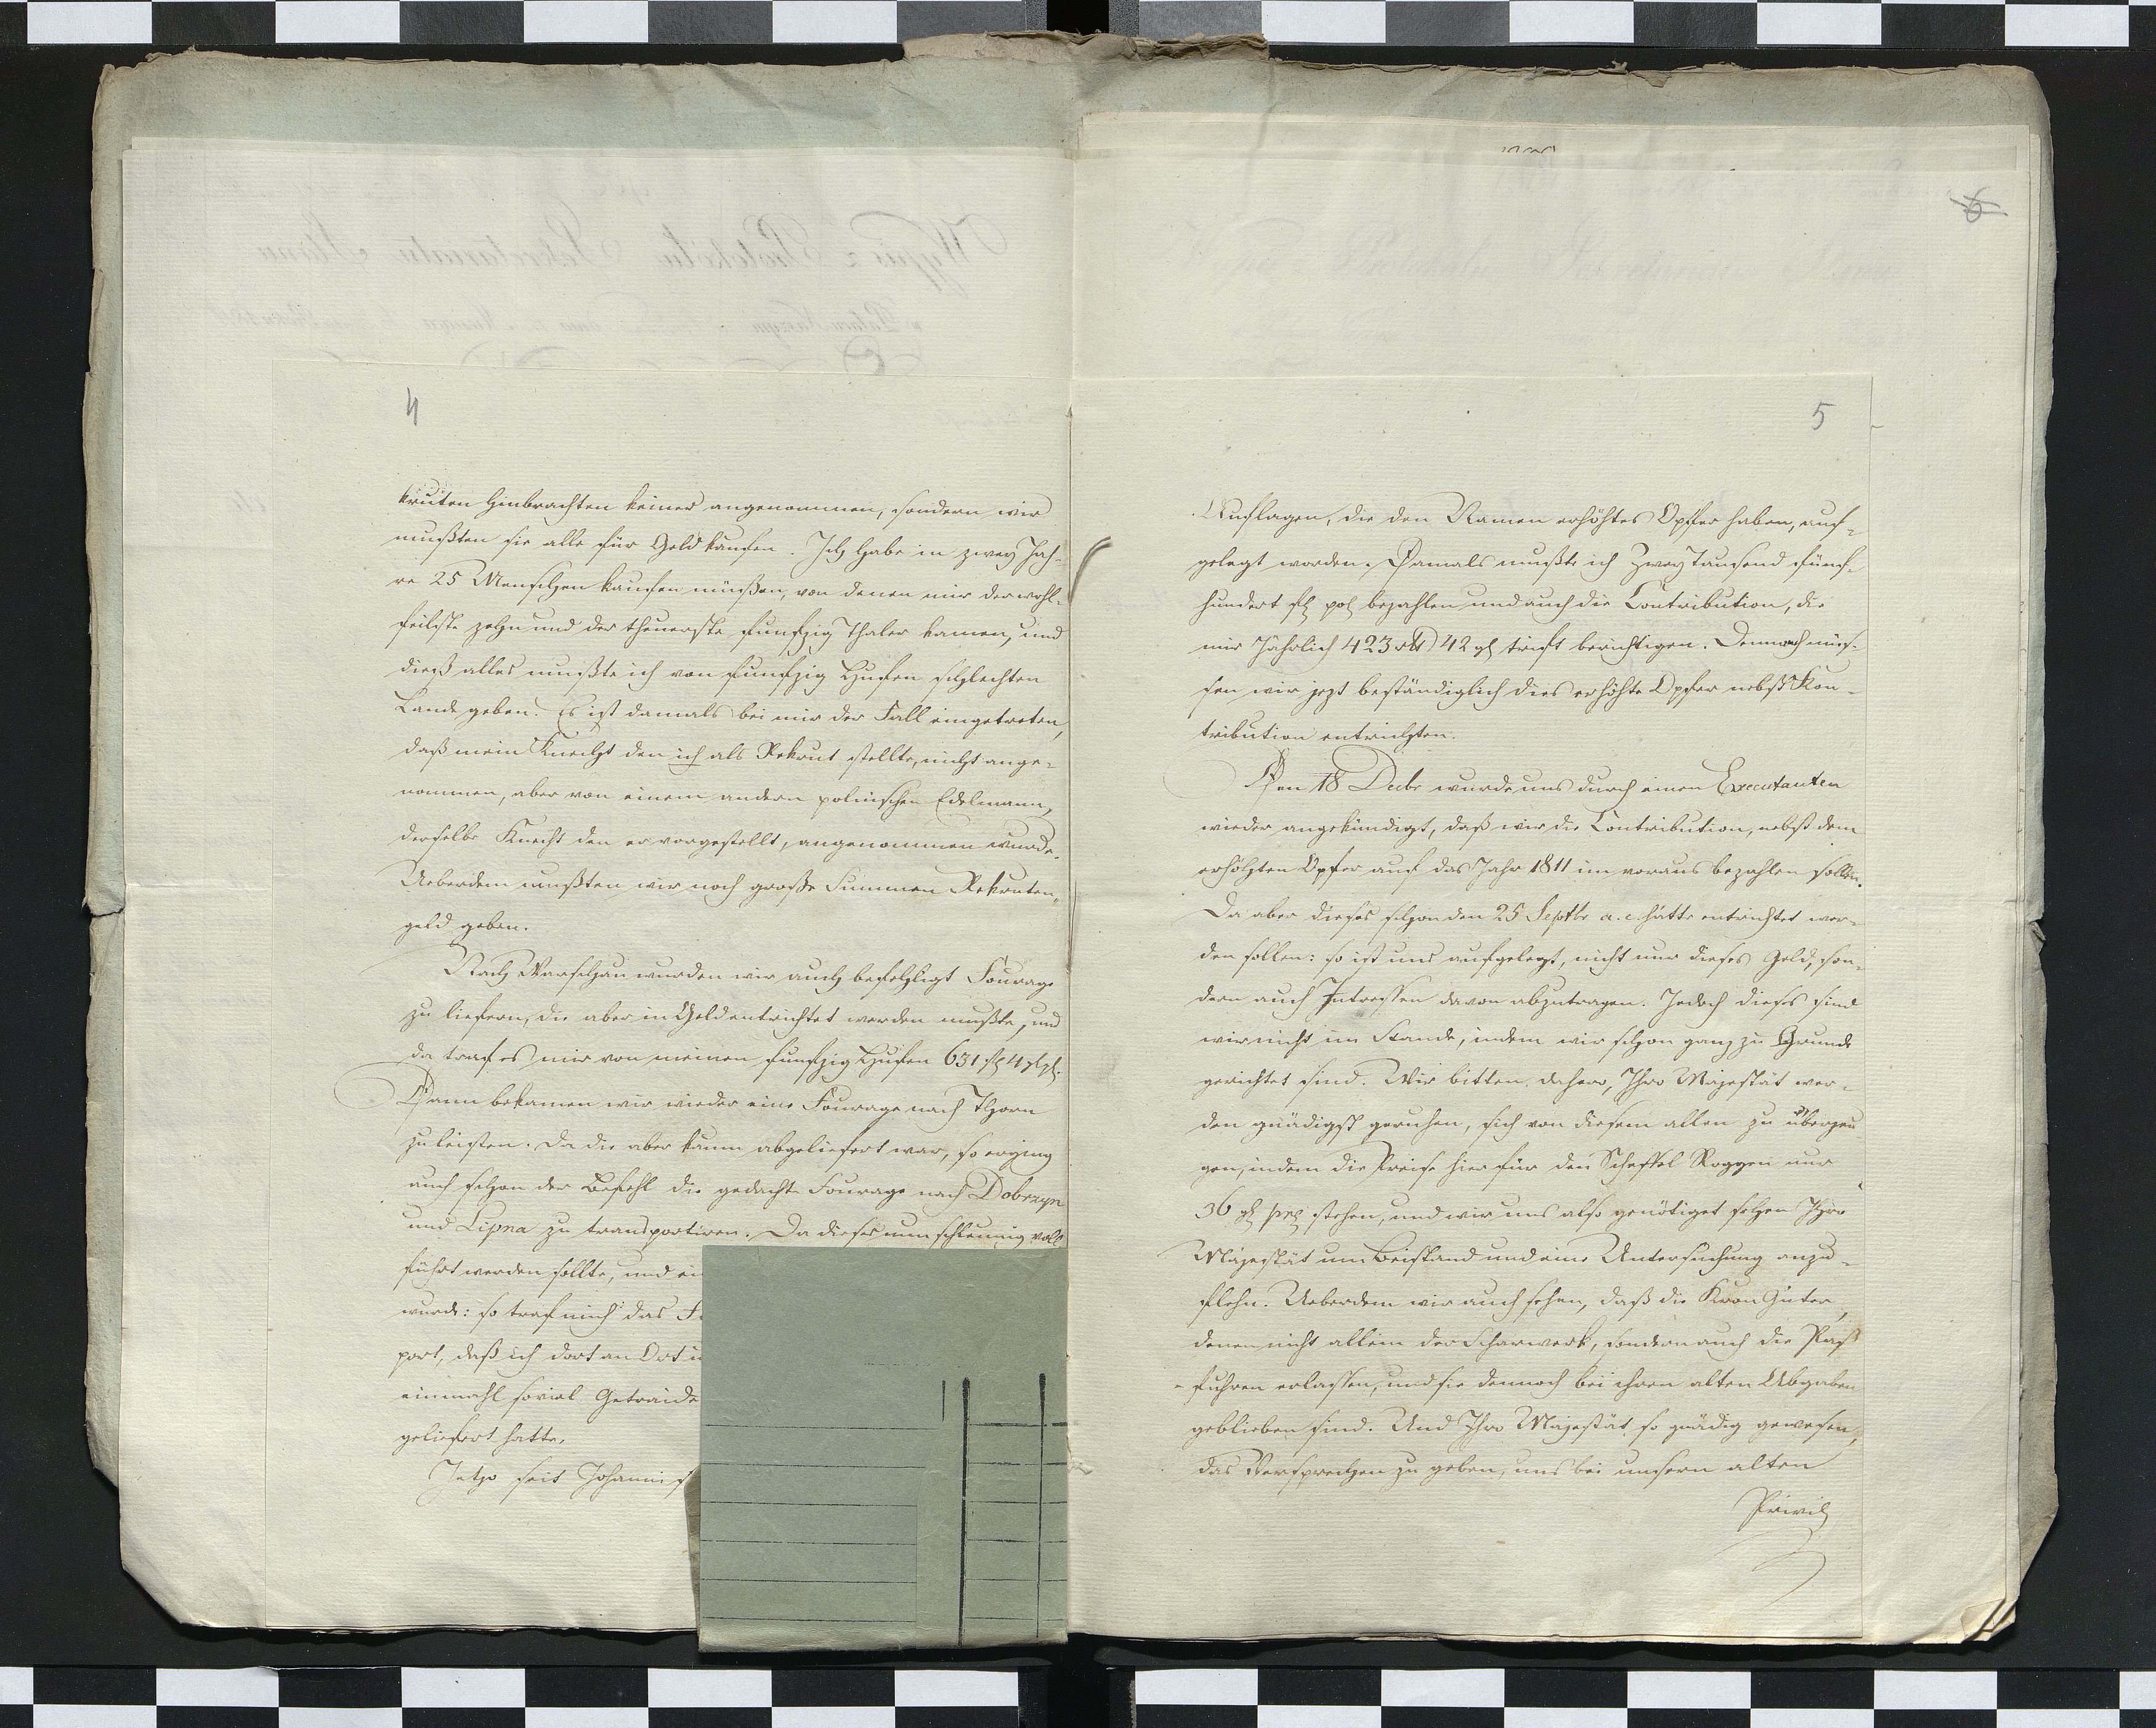 4
kruten hinbrachten keiner angenommen, sondern wir
mußten sie alle für Geld kaufen. Ich habe in zwey Jah-
re 25 Menschen kaufen müßen, von denen mir der wohl-
feilste zehn und der theuerste funfzig Thaler kamen, und
dieß alles mußte ich von funfzig Hufen schlechten
Lande geben. Es ist damals bei mir der Fall eingetreten,
daß mein Knecht den ich als Rekrut stellte, nicht ange-
nommen, aber von einem andern polnischen Edelmann,
derselbe Knecht den er vorgestellt, angenommen wurde.
Ueberdem mußten wir noch große Summen Rekruten-
geld geben.
Nach Warschau wurden wir auch befehligt Fourage
zu liefern, die aber in Geld entrichtet werden mußte, und
da traf es mir von meinen funfzig Hufen 631 fl 4 gl
Dann bekamen wir wieder eine Fourage nach Thorn
zu leisten. Da die aber kaum abgeliefert war, so erging
auch schon der Befehl die gedachte Fourage nach Dobrzyn
und Lipna zu transportiren. Da dieses nun schleunig voll
führt werden sollte, und
wurde: so traf mich das
port, daß ich dort an Ort
einmahl soviel Getraide
geliefert hatte.
Jetzo seit Johanni
6
5
Auflagen, die den Namen erhöhtes Opfer haben, auf-
gelegt worden. Damals mußte ich Zwey Tausend fünf-
hundert fl pol bezahlen und auch die Contribution, die
mir Jährlich 423 rtl 42 gl trift berichtigen. Dennoch müs-
sen wir jezt beständiglich dies erhöhte Opfer nebst Kon-
tribution entrichten.
Den 18 Decbr wurde uns durch einen Executanten
wieder angekündigt, daß wir die Contribution, nebst dem
erhöhten Opfer auf das Jahr 1811 im voraus bezahlen sollen.
Da aber dieses schon den 25 Septbr a. c. hätte entrichtet wer-
den sollen: so ist uns aufgelegt, nicht nur dieses Geld, son-
dern auch Intressen davon abzutragen. Jedoch dieses sind
wir nicht im Stande, indem wir schon ganz zu Grunde
gerichtet sind. Wir bitten daher, Ihro Majestät wer-
den gnädigst geruhen, sich von diesem allen zu überzeu
gen, indem die Preise hier für den Scheffel Roggen nur
36 gl stehen, und wir uns also genötiget sehen Ihro
Majestät um Beistand und eine Untersuchung anzu-
flehn. Ueberdem wir auch sehen, daß die Kron Güter,
denen nicht allein der Scharwerk, sondern auch die Paß
-fuhren erlassen, und sie dennoch bei ihren alten Abgaben
geblieben sind. Und Ihro Majestät so gnädig gewesen,
das Versprechen zu geben, uns bei unsern alten
Privil